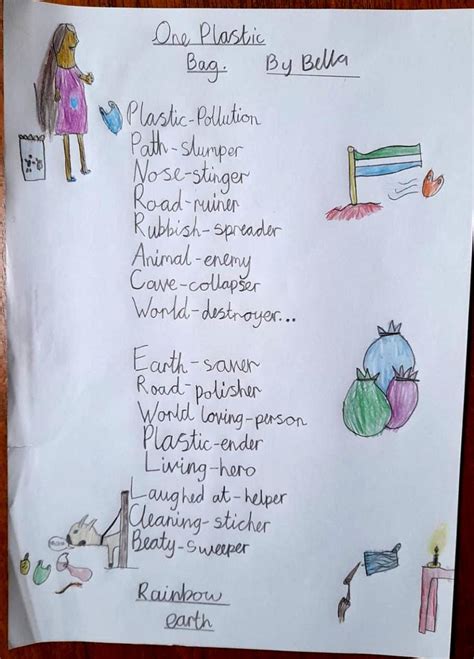 One Plastic
Bag. By Bella
Plastic-Pollution
Path-slumper
Nose-stinger
Road-ruiner
Rubbish-spreader
Animal-enemy
Cave-collapser
World-destroyer...
Earth-saver
Road-polisher
World loving-person
Plastic-ender
Living-hero
Laughed at-helper
Cleaning-sticher
Beaty-sweeper
Rainbow
earth